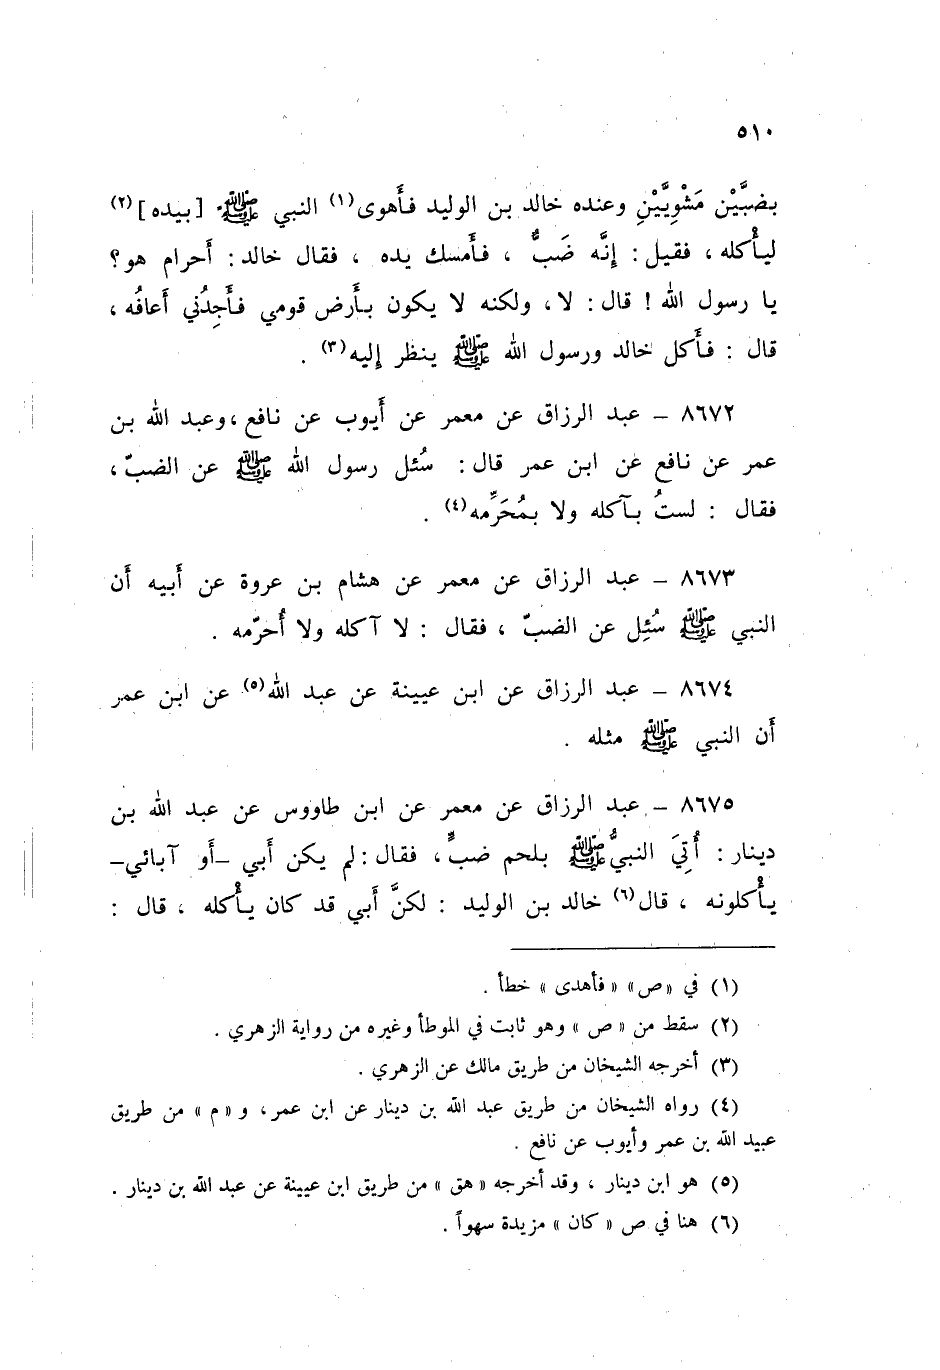 ٥١٠
بضبَّيْن مَشْوِيَّيْنِ وعنده خالد بن الوليد فأَهوى(١) النبي ﷺ [بيده](٢)
ليأْكله ، فقيل : إِنَّه ضَبٌّ ، فأَمسك يده ، فقال خالد : أَحرام هو؟
يا رسول الله ! قال : لا ، ولكنه لا يكون بأَرض قومي فأَجِدُني أَعافُه ،
قال : فأَكل خالد ورسول الله ﷺ ينظر إِليه(٣) .
٨٦٧٢ – عبد الرزاق عن معمر عن أَيوب عن نافع ، وعبد الله بن
عمر عن نافع عن ابن عمر قال : سُئل رسول الله ﷺ عن الضبّ ،
فقال : لستُ بآكله ولا بمُحَرِّمه(٤) .
٨٦٧٣ – عبد الرزاق عن معمر عن هشام بن عروة عن أَبيه أَن
النبي ﷺ سُئِل عن الضبّ ، فقال : لا آكله ولا أُحرّمه .
٨٦٧٤ – عبد الرزاق عن ابن عيينة عن عبد الله(٥) عن ابن عمر
أَن النبي ﷺ مثله .
٨٦٧٥ – عبد الرزاق عن معمر عن ابن طاووس عن عبد الله بن
دينار : أُتِيَ النبيُّ ﷺ بلحم ضبٍّ ، فقال : لم يكن أَبي –أَو آبائي–
يأْكلونه ، قال(٦) خالد بن الوليد : لكنَّ أَبي قد كان يأْكله ، قال :
(١) في «ص» « فأهدى » خطأ .
(٢) سقط من « ص » وهو ثابت في الموطأ وغيره من رواية الزهري .
(٣) أخرجه الشيخان من طريق مالك عن الزهري .
(٤) رواه الشيخان من طريق عبد الله بن دينار عن ابن عمر ، و « م » من طريق
عبيد الله بن عمر وأيوب عن نافع .
(٥) هو ابن دينار ، وقد أخرجه « هق » من طريق ابن عيينة عن عبد الله بن دينار .
(٦) هنا في ص « كان » مزيدة سهواً .